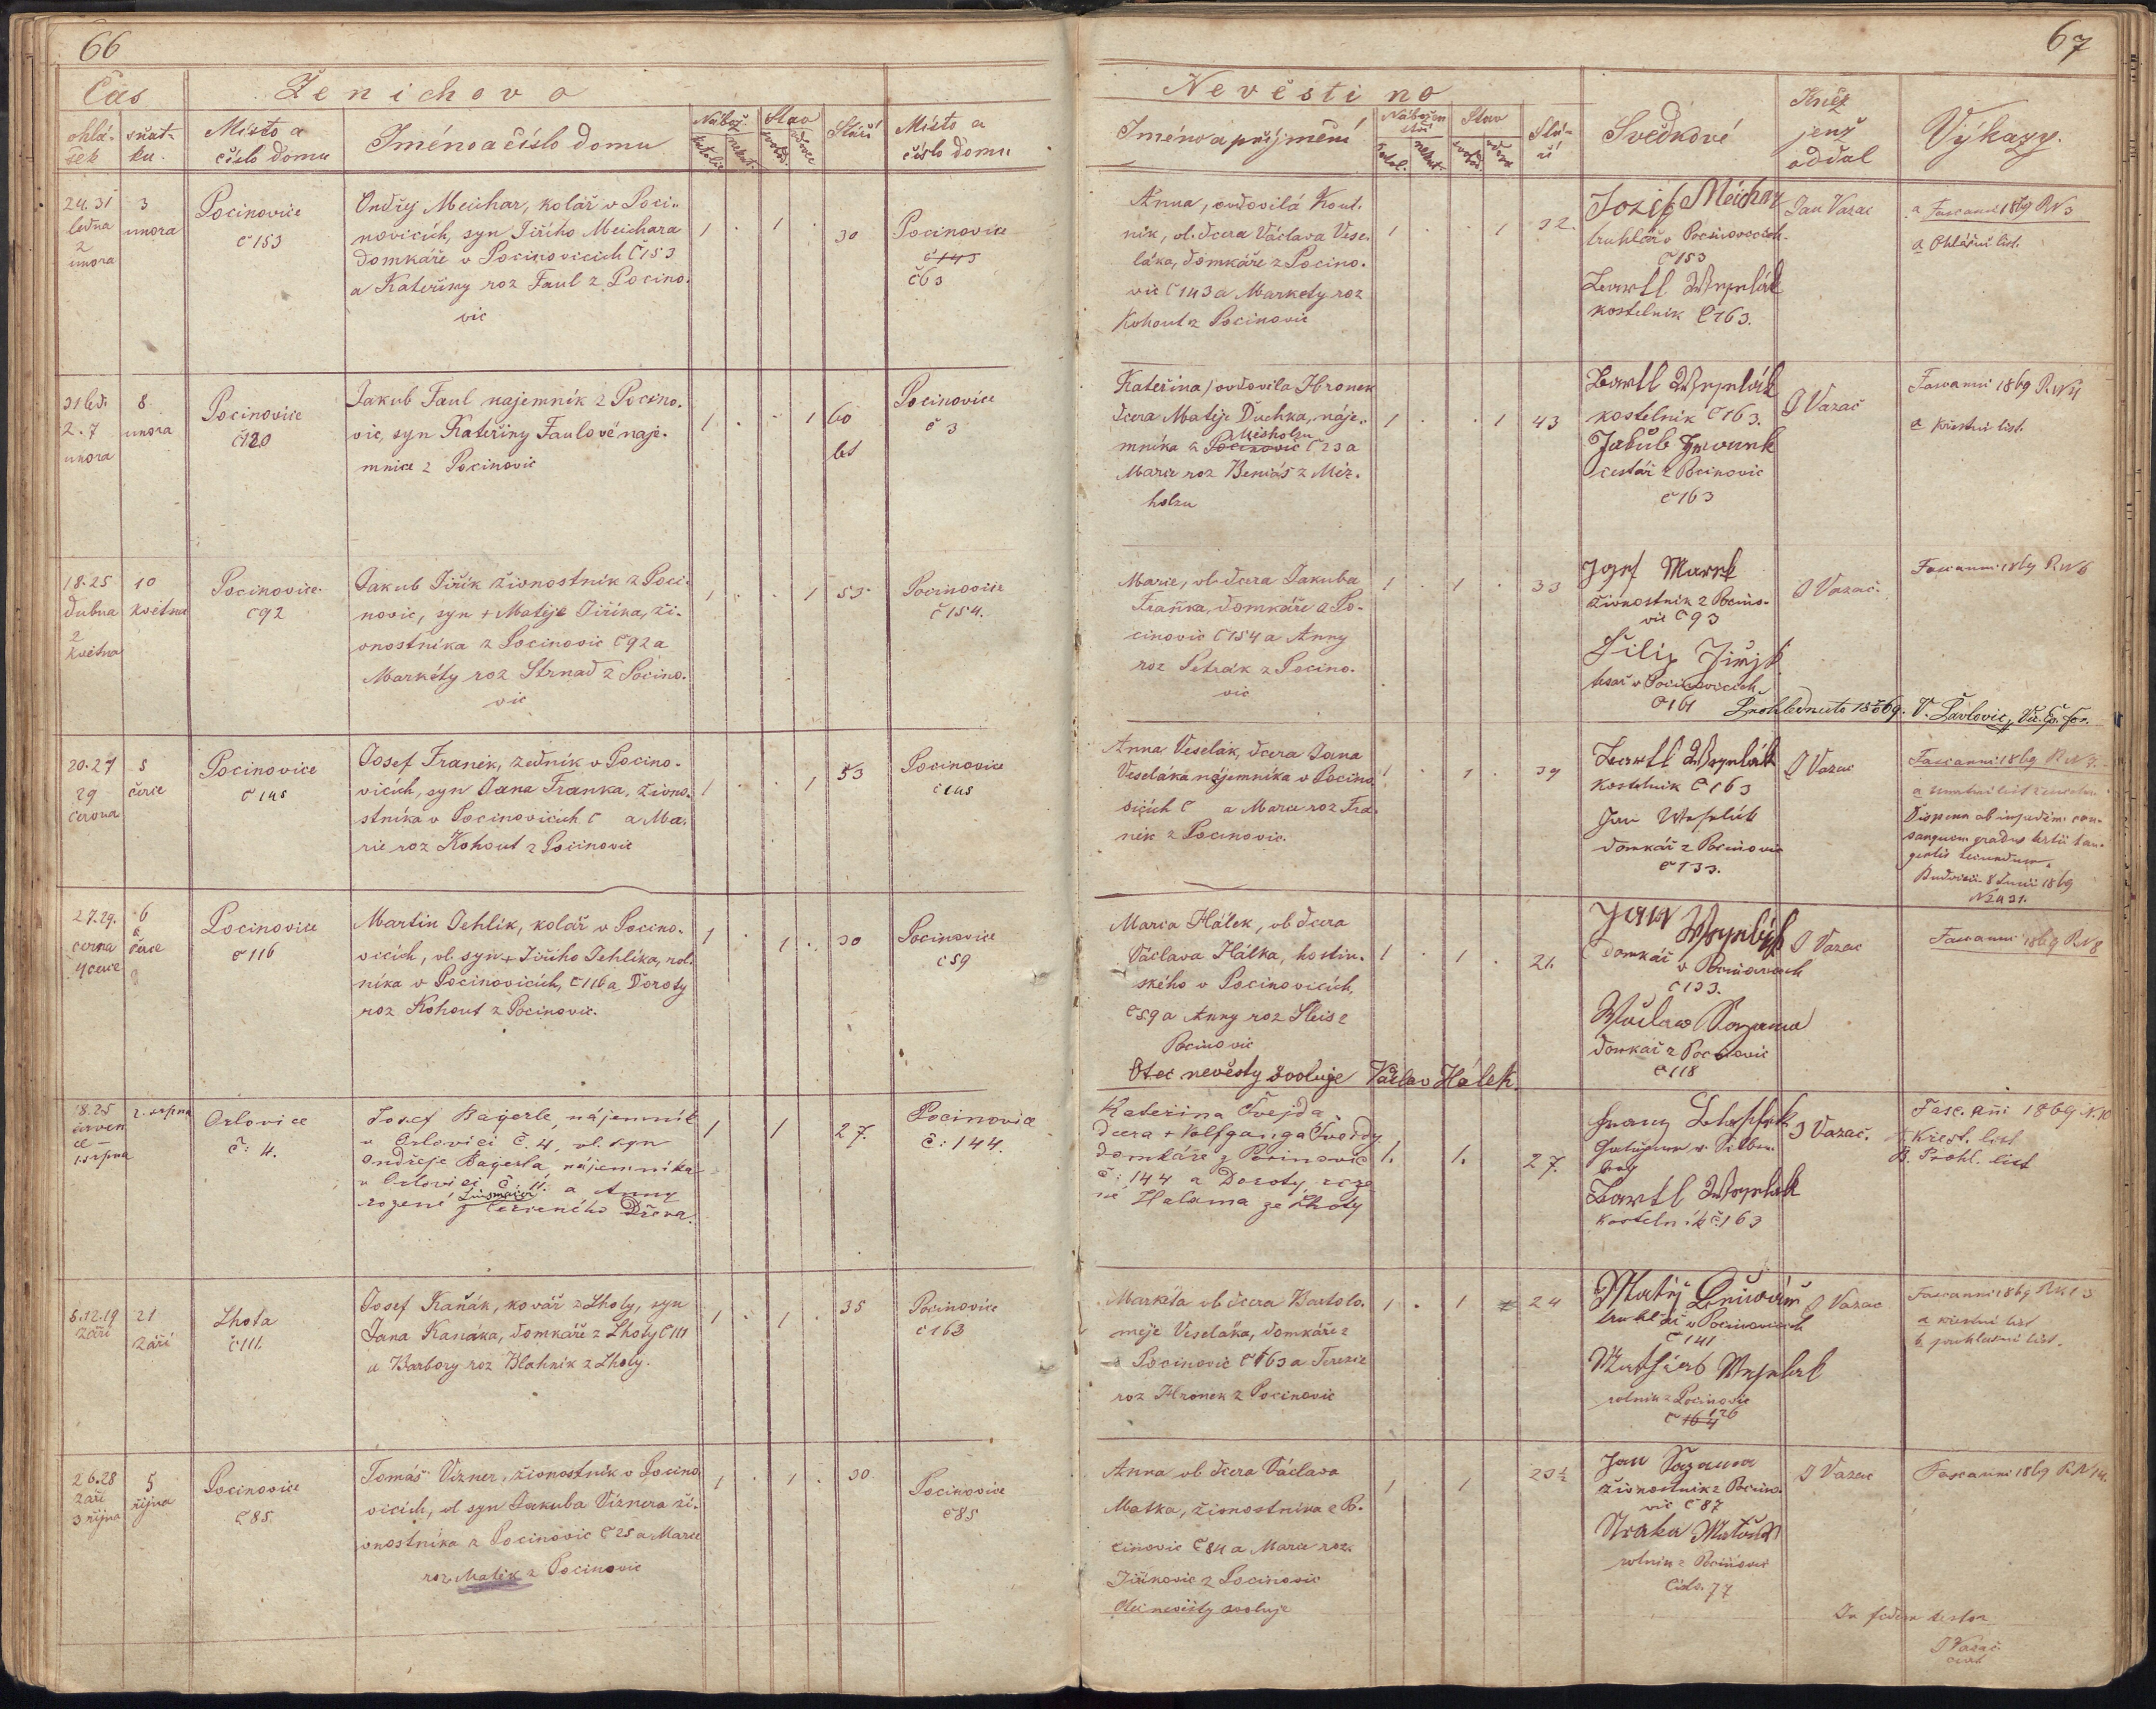 66
67
Čas
Ženichovo
Nevěstino
ohlá-
šek
sňat-
ku.
Místo a
číslo domu
Jméno a číslo domu
Nábož.
Stav
Stáří
Místo a
číslo domu
Jméno a příjmění
Nábožen
ství
Stav
Stá-
ří
Svědkové
Kněz
jenž
oddal
Výkazy.
24. 31
ledna
2
února
3
února
Pocinovice
č 153
Ondřej Meichar, kolář v Poci-
novicích, syn Jiřího Meichara
domkáře v Pocinovicích č 153
a Kateřiny roz Faul z Pocino.
vic
1 . 1 . 30
Pocinovice
č 143
č 63
Anna, ovdovilá Kout.
nik, vl. dcera Václava Vese.
láka, domkáře z Pocino.
vic č 143 a Markety roz
Kohout z Pocinovic
1 . . 1 32.
Jozef Meichar
truhlář v Pocinovicích
č 153
Bartl Weselák
kostelník č 163.
Jan Vazač
a Fasc anni 1869 R N 3
a Ohlášní list.
31 led.
2. 7
února
8
února
Pocinovice
č 120
Jakub Faul najemník z Pocino.
vic, syn Kateřiny Faulové náje.
mnice z Pocinovic
1 . . 1 60
let
Pocinovice
č 3
Kateřina, ovdovila Hronek
dcera Matěje Duchka, náje.
Misholzu
mníka z Pocinovic č 23 a
Marie roz Beniáš z Miš.
holzu
1 . . 1 43
Bartl Weselák
kostelník č 163.
Jakub
cestář z Pocinovic
č 163
J Vazač
Fasc anni 1869 R N 4
a křestní list.
18. 25
dubna
2
května
10
května
Pocinovice
č 92
Jakub Jiřík živnostník z Poci.
novic, syn + Matěje Jiříka, ži-
vnostníka z Pocinovic č 92 a
Markéty roz Strnad z Pocino.
vic
1 . . 1 53
Pocinovice
č 154.
Marie, vl. dcera Jakuba
Fraňka, domkáře z Po-
cinovic č 154 a Anny
roz Petrák z Pocino.
vic
1 . 1 . 33
Jozef Marek
živnostník z Pocino-
vic č 93
Filip Jiřik
tesař v Pocinovicích
č 161
J Vazač.
Fasc anni 1869 R N 6
Prohlednuto 1869. V. Pavlovic,
20. 27
29
června
5
čerce
Pocinovice
č 145
Josef Franěk, zedník v Pocino-
vicích, syn Jana Fraňka, živno-
stníka v Pocinovicích č a Ma.
rie roz Kohout z Pocinovic
1 . . 1 53
Pocinovice
č 145
Anna Veselák, dcera Jana
Veseláka nájemníka v Pocino
vicích č a Marie roz Fra.
něk z Pocinovic.
1 . 1 . 39
Bartl Weselák
kostelník č 163
Jan Weselák
domkář z Pocinovic
č 133.
J Vazač
Fasc anni 1869 R N 7.
Dispens ab impedim. con-
sanguin. gradus tertii tan-
gentis secundum.
Budvicii 8 Junii 1869
N 2431.
27. 29.
června
4 čerce
6
čerce
Pocinovice
č 116
Martin Jehlík, kolář v Pocino.
vicích, vl. syn + Jiřího Jehlíka, rol.
níka v Pocinovicích, č 116 a Doroty
roz Kohout z Pocinovic.
1 . 1 . 30
Pocinovice
č 59
Maria Hálek, vl. dcera
Václava Hálka, hostin.
ského v Pocinovicích,
č 59 a Anny roz Sleis z
Pocinovic
Otec nevěsty svoluje Václav Hálek.
1 . 1 . 21.
Jan Weselák
domkář v Pocinovicích
č 133.
Waclaw Sazama
domkář z Pocinovic
č 118
J Vazač
Fasc anni 1869 R N 8
18. 25
červen
ce –
1. srpna
2. srpna
Orlovice
č: 4.
Josef Bagerle, nájemník
v Orlovici č. 4, vl. syn
Ondřeje Bagerla, nájemníka
v Orlovici č. 11. a Anny
rozené z Červeného Dřeva.
1 1 27.
Pocinovice
č: 144.
Kateřina Švejda
dcera + Volfganga Švejdy
domkáře z Pocinovic
č: 144 a Doroty roze
né Halama ze Lhoty
1. 1. 27.
Franz
Bartl Weselák
kostelník č: 163
J Vazač.
Fasc. ani 1869 N. 10
A. Křest. list
B. Prohl. list
5. 12. 19
září
21
září
Lhota
č 111.
Josef Kaňák, kovář z Lhoty, syn
Jana Kaňáka, domkáře z Lhoty č 111
a Barbory roz Blahník z Lhoty.
1 . 1 . 35
Pocinovice
č 163
Markéta vl. dcera Bartolo.
měje Veseláka, domkáře z
Pocinovic č 163 a Terezie
roz Hronek z Pocinovic
1 . 1 24
Matěj
truhlář v Pocinovicích
č 141
Mathias Weselak
rolník z Pocinovic
č 164 126
J Vazač
Fasc anni 1869 R N 13
a křestní list
b prohlašní list.
26. 28
září
3 října
5
října
Pocinovice
č 85.
Tomáš Vizner, živnostník v Pocino
vicích, vl syn Jakuba Viznera ži.
vnostníka z Pocinovic č 25 a Marie
roz Matěk z Pocinovic
1 . 1 . 30
Pocinovice
č 85
Anna vl. dcera Václava
Matka, živnostníka z Po.
cinovic č 84 a Marie roz.
Jiřinovic z Pocinovic
Otec nevěsty svoluje
1 1 23½
Jan Sazama
živnostník z Pocino.
vic č 87
Straka Matouš
rolník z Pocinovic
číslo. 77
J Vazač
Fasc anni 1869 R N 14.
In fidem testor
J Vazač